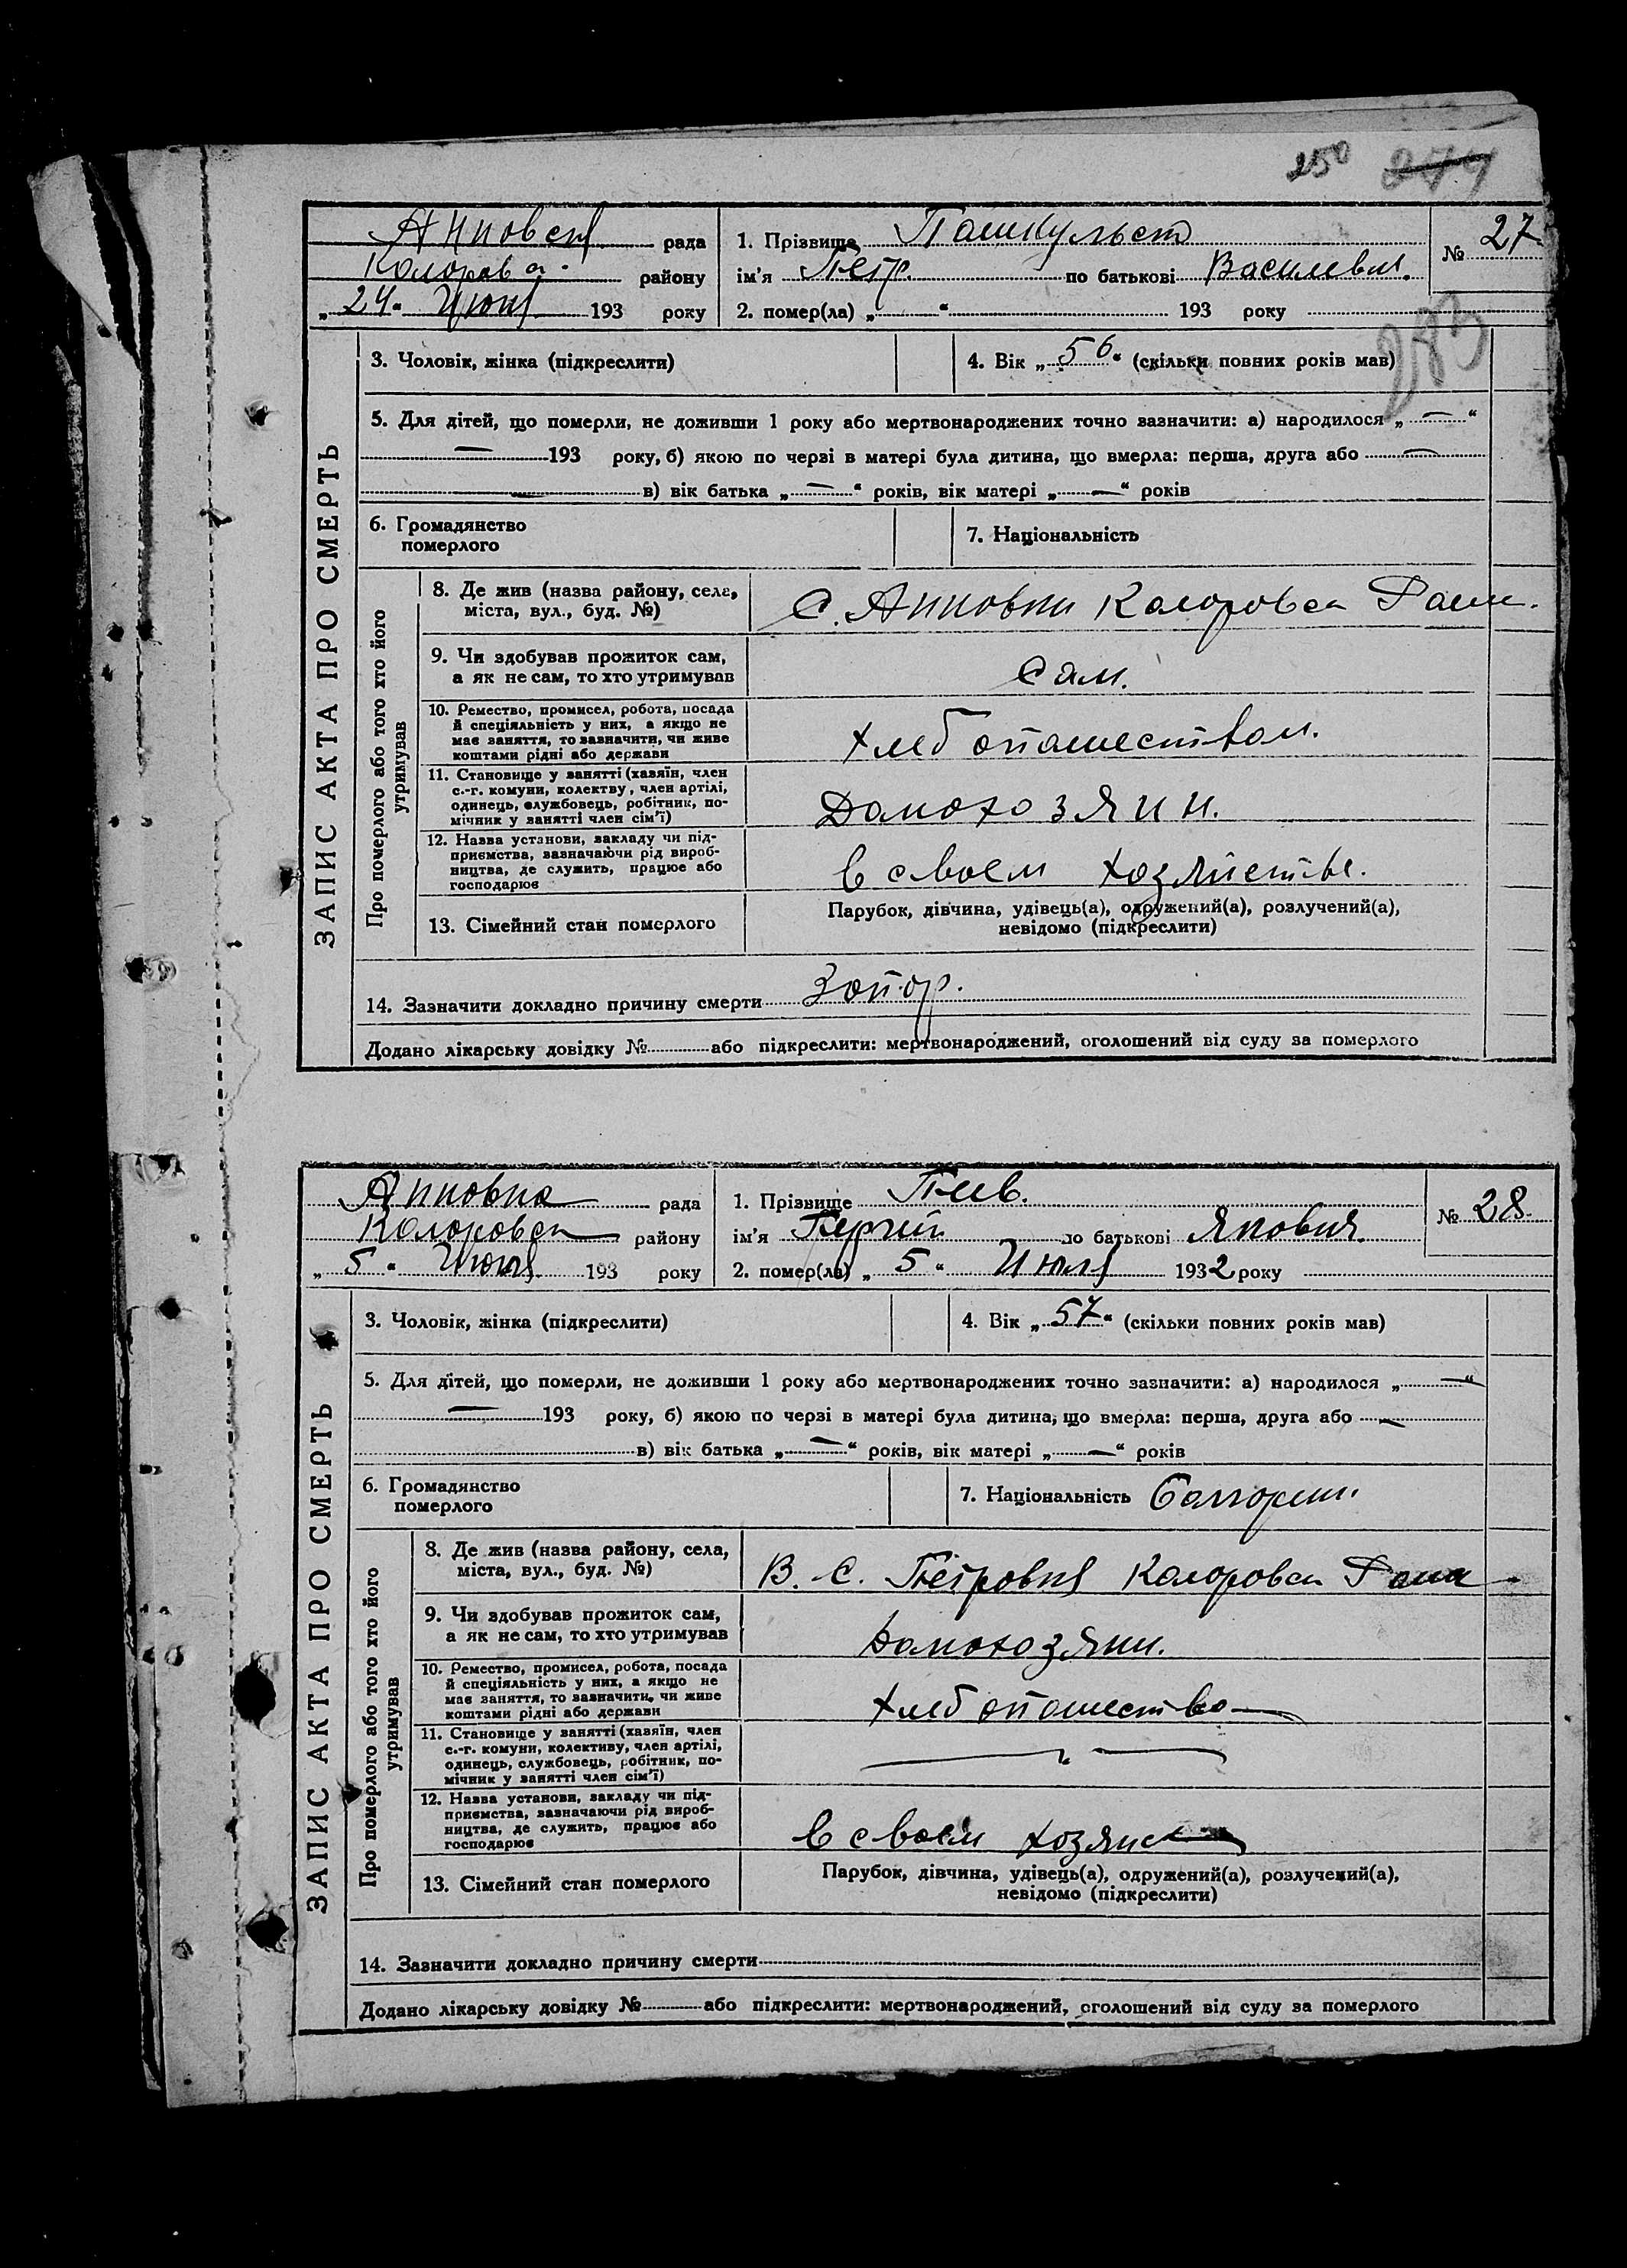 250 274
Анновск рада 1. Прізвище № 27
Коларов а. району ім'я Петр. по батькові Василевич.
„ 24 “ Июня 193 року 2. помер(ла) „ “ 193 року
283
ЗАПИС АКТА ПРО СМЕРТЬ
3. Чоловік, жінка (підкреслити) 4. Вік „ 56 “ (скільки повних років мав)
5. Для дітей, що померли, не доживши 1 року або мертвонароджених точно зазначити: а) народилося „ — “
— 193 року, б) якою по черзі в матері була дитина, що вмерла: перша, друга або —
— в) вік батька „ — “ років, вік матері „ — “ років
6. Громадянство
померлого
7. Національність
Про померлого або того хто його
утримував
8. Де жив (назва району, села,
міста, вул., буд. №)
С. Анновки Коларовск
9. Чи здобував прожиток сам,
а як не сам, то хто утримував
Сам.
10. Ремество, промисел, робота, посада
й спеціяльність у них, а якщо не
має заняття, то зазначити, чи живе
коштами рідні або держави
хлебопашеством.
11. Становище у занятті (хазяїн, член
с.-г. комуни, колектву, член артілі,
одинець, службовець, робітник, по-
мічник у занятті член сім'ї)
Домохозяин.
12. Назва установи, закладу чи під-
приємства, зазначаючи рід вироб-
ництва, де служить, працює або
господарює
в своем хозяйстве.
13. Сімейний стан померлого
Парубок, дівчина, удівець(а), одружений(а), розлучений(а),
невідомо (підкреслити)
14. Зазначити докладно причину смерти Запор.
Додано лікарську довідку № або підкреслити: мертвонароджений, оголошений від суду за померлого
Анновка рада 1. Прізвище № 28
Коларовск району ім'я по батькові
„ 5 “ Июля 193 року 2. помер(ла) „ 5 “ Июля 1932 року
ЗАПИС АКТА ПРО СМЕРТЬ
3. Чоловік, жінка (підкреслити) 4. Вік „ 57 “ (скільки повних років мав)
5. Для дітей, що померли, не доживши 1 року або мертвонароджених точно зазначити: а) народилося „ — “
— 193 року, б) якою по черзі в матері була дитина, що вмерла: перша, друга або —
в) вік батька „ — “ років, вік матері „ — “ років
6. Громадянство
померлого
7. Національність Болгорин.
Про померлого або того хто його
утримував
8. Де жив (назва району, села,
міста, вул., буд. №)
В. С. Петровка Коларовск
9. Чи здобував прожиток сам,
а як не сам, то хто утримував
Домохозяин.
10. Ремество, промисел, робота, посада
й спеціяльність у них, а якщо не
має заняття, то зазначити, чи живе
коштами рідні або держави
хлебопашество
11. Становище у занятті (хазяїн, член
с.-г. комуни, колективу, член артілі,
одинець, службовець, робітник, по-
мічник у занятті член сім'ї)
12. Назва установи, закладу чи під-
приємства, зазначаючи рід вироб-
ництва, де служить, працює або
господарює
в своем
13. Сімейний стан померлого
Парубок, дівчина, удівець(а), одружений(а), розлучений(а),
невідомо (підкреслити)
14. Зазначити докладно причину смерти
Додано лікарську довідку № або підкреслити: мертвонароджений, оголошений від суду за померлого